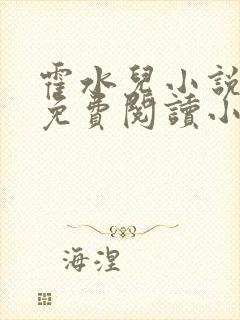 霍水兒小說
免費閱讀小
海涅